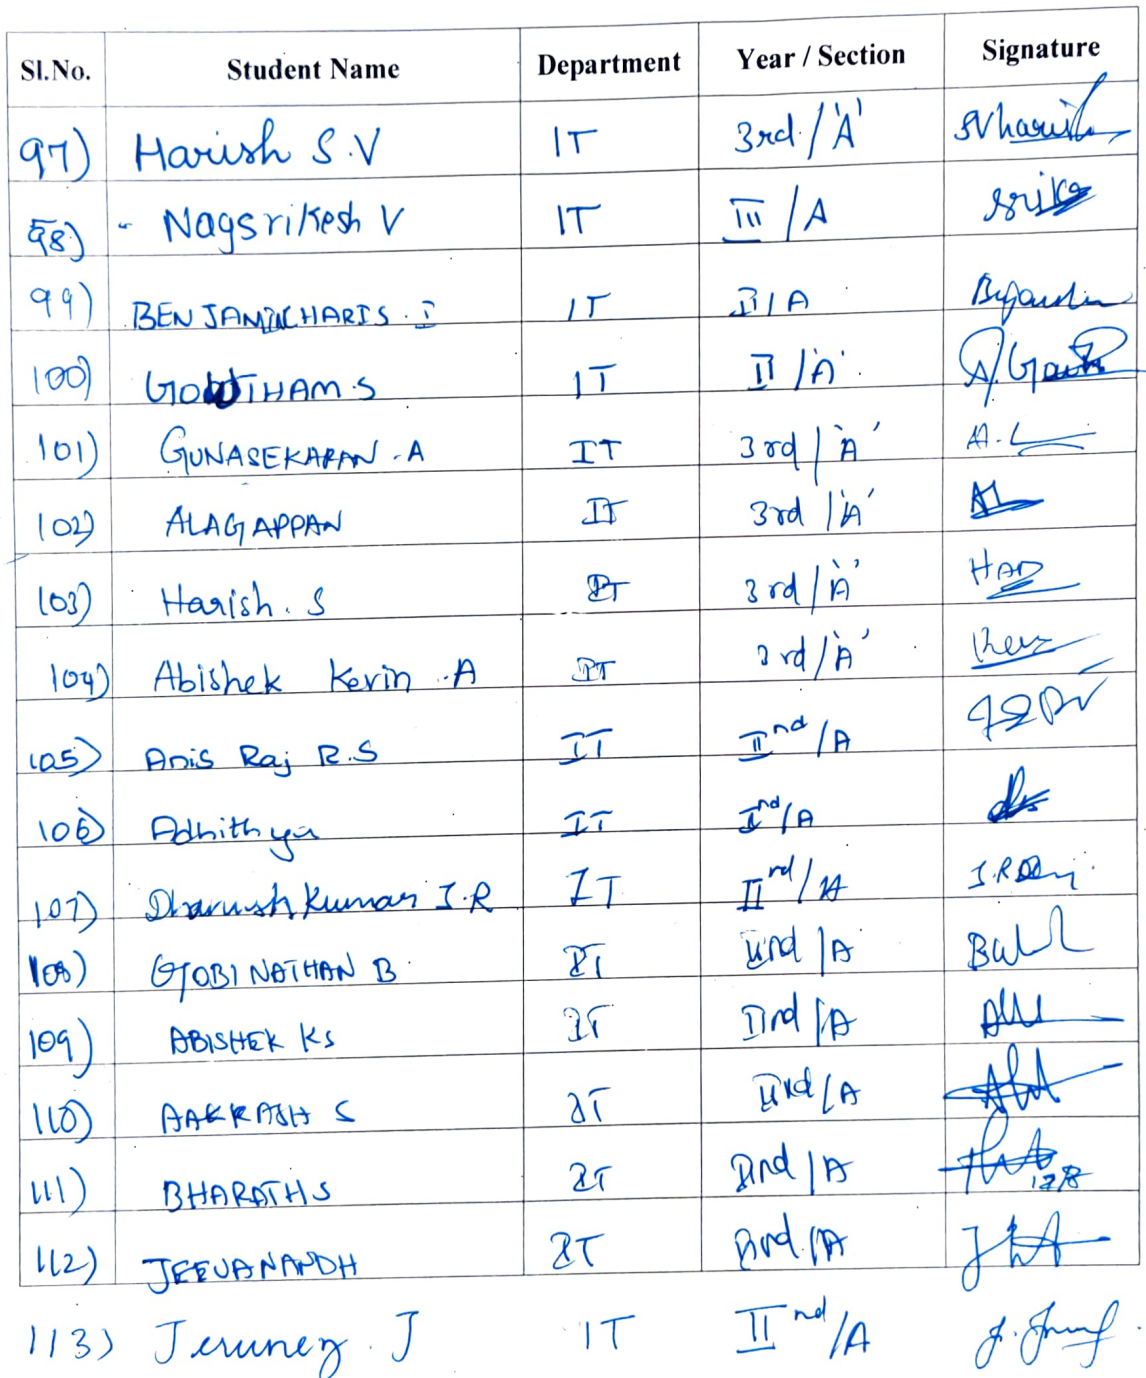 Sl.No. Student Name Department Year / Section Signature
97) Harish S.V IT 3rd / 'A' SVharish
98) - Nagsrikesh V IT III / A
99) BENJAMIN CHARIS . I IT II / A
100) GOWTHAM S IT II / 'A'
101) GUNASEKARAN . A IT 3rd / 'A'
102) ALAGAPPAN IT 3rd / 'A'
103) Harish . S IT 3rd / 'A'
104) Abishek Kevin . A IT 3rd / 'A'
105) Anis Raj R.S IT IInd / A
106) Adhithya IT /A
107) Dharnish Kumar I.R IT IIrd / A
108) GOBINATHAN B IT IInd / A
109) ABISHEK KS IT / A
110) AAKKASH S IT / A
111) BHARATH S IT IInd / A
112) JEEVANANDH IT / A
113) J IT IInd / A